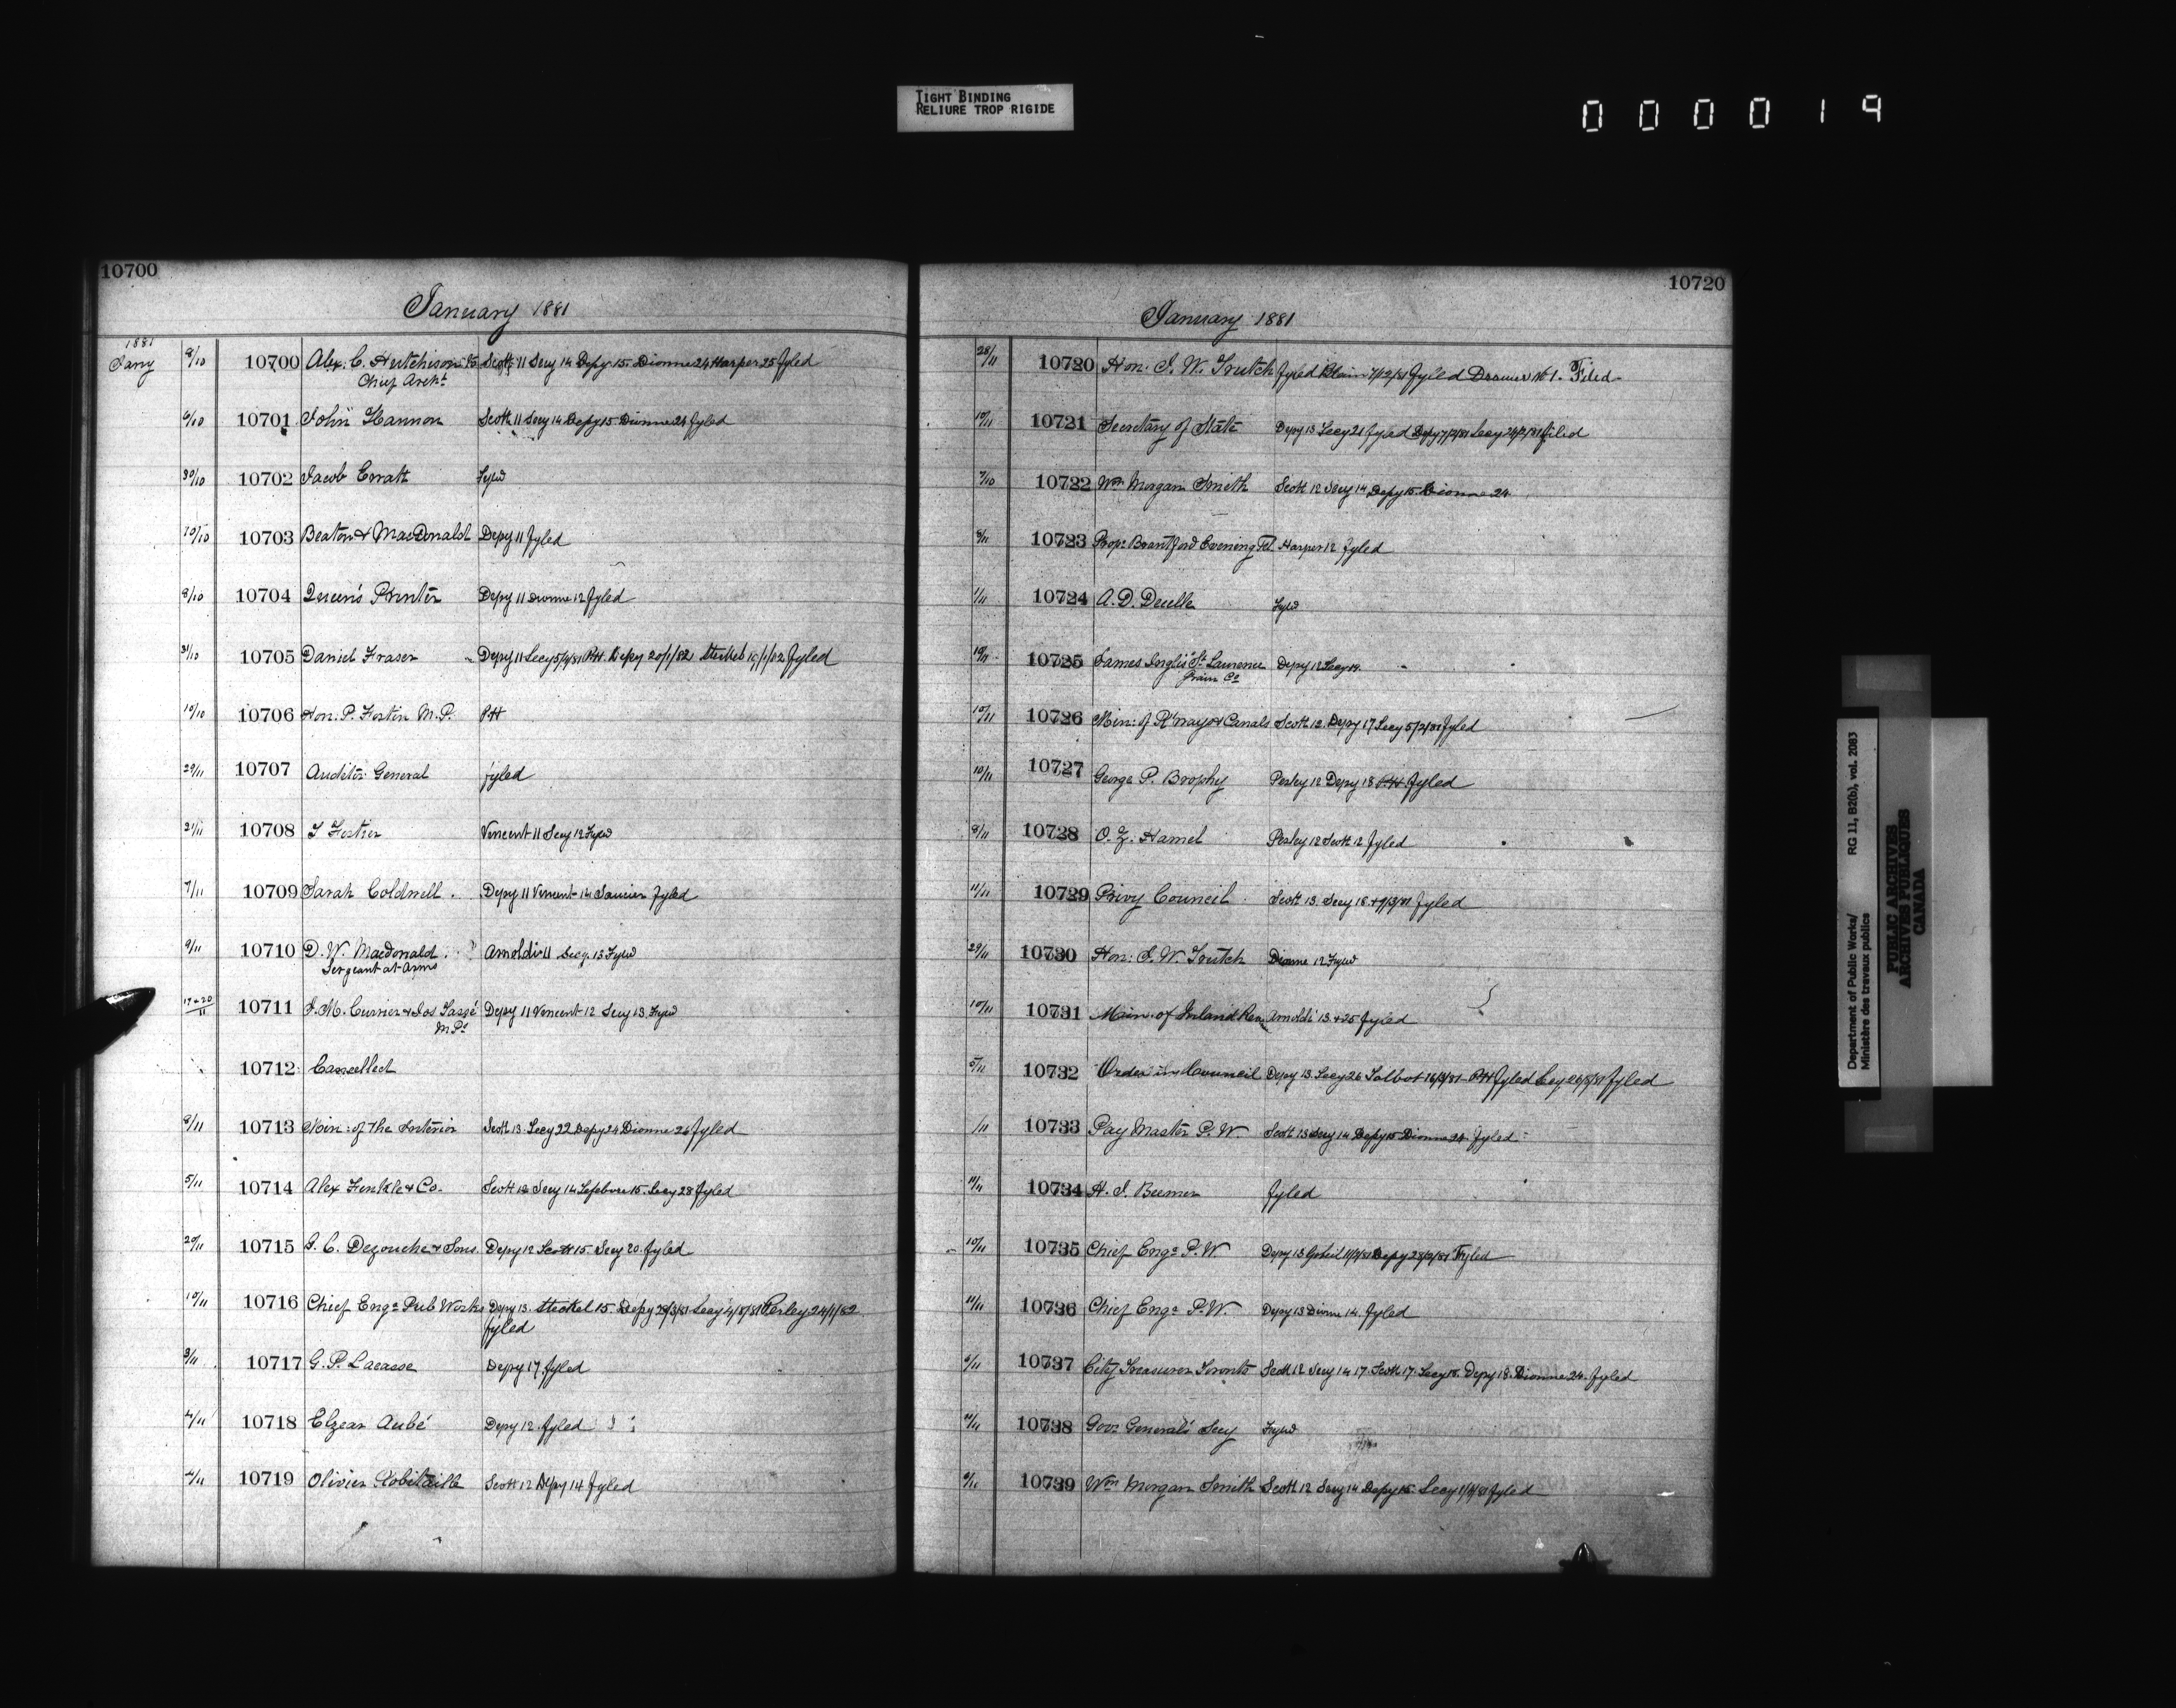 TIGHT BINDING
RELIURE TROP RIGIDE
0 0 0 0 1 9
10700
January 1881
1881
Jany 8/10 10700 Alex. C. Hutchison Scott 11 Secy 14 Depy 15 Dionne 24 Harper 25 fyled
Chief Archt
6/10 10701 John Hannon Scott 11 Secy 14 Depy 15 Dionne 24 fyled
30/10 10702 Jacob Erratt Fyled
10/10 10703 Beaton & MacDonald Depy 11 fyled
8/10 10704 Queen's Printer Depy 11 Dionne 12 fyled
31/10 10705 Daniel Fraser Depy 11 Secy 5/4/81 PH. Depy 20/1/82 Steckel fyled
10/10 10706 Hon. P. Fortin M.P. PH
29/11 10707 Auditor General fyled
21/11 10708 Fortier Vincent 11 Secy 12 Fyled
7/11 10709 Sarah Coldwell Depy 11 Vincent 14 Saucier fyled
9/11 10710 D. W. Macdonald Arnoldi 11 Secy 13 Fyled
Sergeant-at-Arms
19+20/11 10711 J. M. Currier & Jos Tassé Depy 11 Vincent 12 Secy 13 Fyled
M.Ps
10712 Cancelled
8/11 10713 Min: of the Interior Scott 13 Secy 22 Depy 24 Dionne 26 fyled
5/11 10714 Alex Finkle & Co. Scott 12 Secy 14 Lefebvre 15. Secy 28 fyled
20/11 10715 C. Dezouche & Sons. Depy 12 Scott 15. Secy 20. fyled
10/11 10716 Chief Engr Pub Works Depy 13. Steckel 15. Depy 29/3/81 Secy 4/5/81 Perley 24/1/82
fyled
3/11 10717 G. P. Lacasse Depy 17 fyled
4/11 10718 Elzear Aubé Depy 12 fyled
4/11 10719 Olivier Robitaille Scott 12 Depy 14 fyled
10720
January 1881
28/11 10720 Hon: J. W. Trutch fyled Blain 7/12/81 fyled Drawer No 1. Filed
10/11 10721 Secretary of State Depy 13 Secy 21 fyled Depy 7/2/81 Secy 24/2/81 filed
7/10 10722 Wm Morgan Smith Scott 12 Secy 14 Depy 15. Dionne 24
8/11 10723 Propr Brantford Evening Tel. Harper 12 fyled
1/11 10724 A. D. Decelle Fyled
10/11 10725 James Inglis St Lawrence Depy 12 Secy 19.
Grain Co
10/11 10726 Min: of R'ways & Canals Scott 12. Depy 17 Secy 5/2/81 fyled
10/11 10727 George P. Brophy Perley 12 Depy 18 PH fyled
8/11 10728 O. Z. Hamel Perley 12 Scott 12 fyled
11/11 10729 Privy Council Scott 13. Secy 18. fyled
29/11 10730 Hon: J. W. Trutch Dionne 12 Fyled
10/11 10731 of Inland Rev Arnoldi 13 + 25 fyled
5/11 10732 Order in Council Depy 13 Secy 26 Talbot PH fyled Secy fyled
/11 10733 Pay Master P. W. Scott 13 Secy 14 Depy 15 Dionne 24 fyled
11/11 10734 H. J. Beemer fyled
10/11 10735 Chief Engr P. W Depy 13 Gobeil Depy 28/2/81 Fyled
11/11 10736 Chief Engr P. W. Depy 13 Dionne 14. fyled
6/11 10737 City Treasurer Toronto Scott 12 Secy 14 17. Scott 17. Secy 18. Depy 18. Dionne 24. fyled
10738 Govr General's Secy Fyled
10739 Wm Morgan Smith Scott 12 Secy 14 Depy 15 Secy fyled
Department of Public Works/ RG 11, B2(b), vol. 2083
Ministère des travaux publics
PUBLIC ARCHIVES
ARCHIVES PUBLIQUES
CANADA